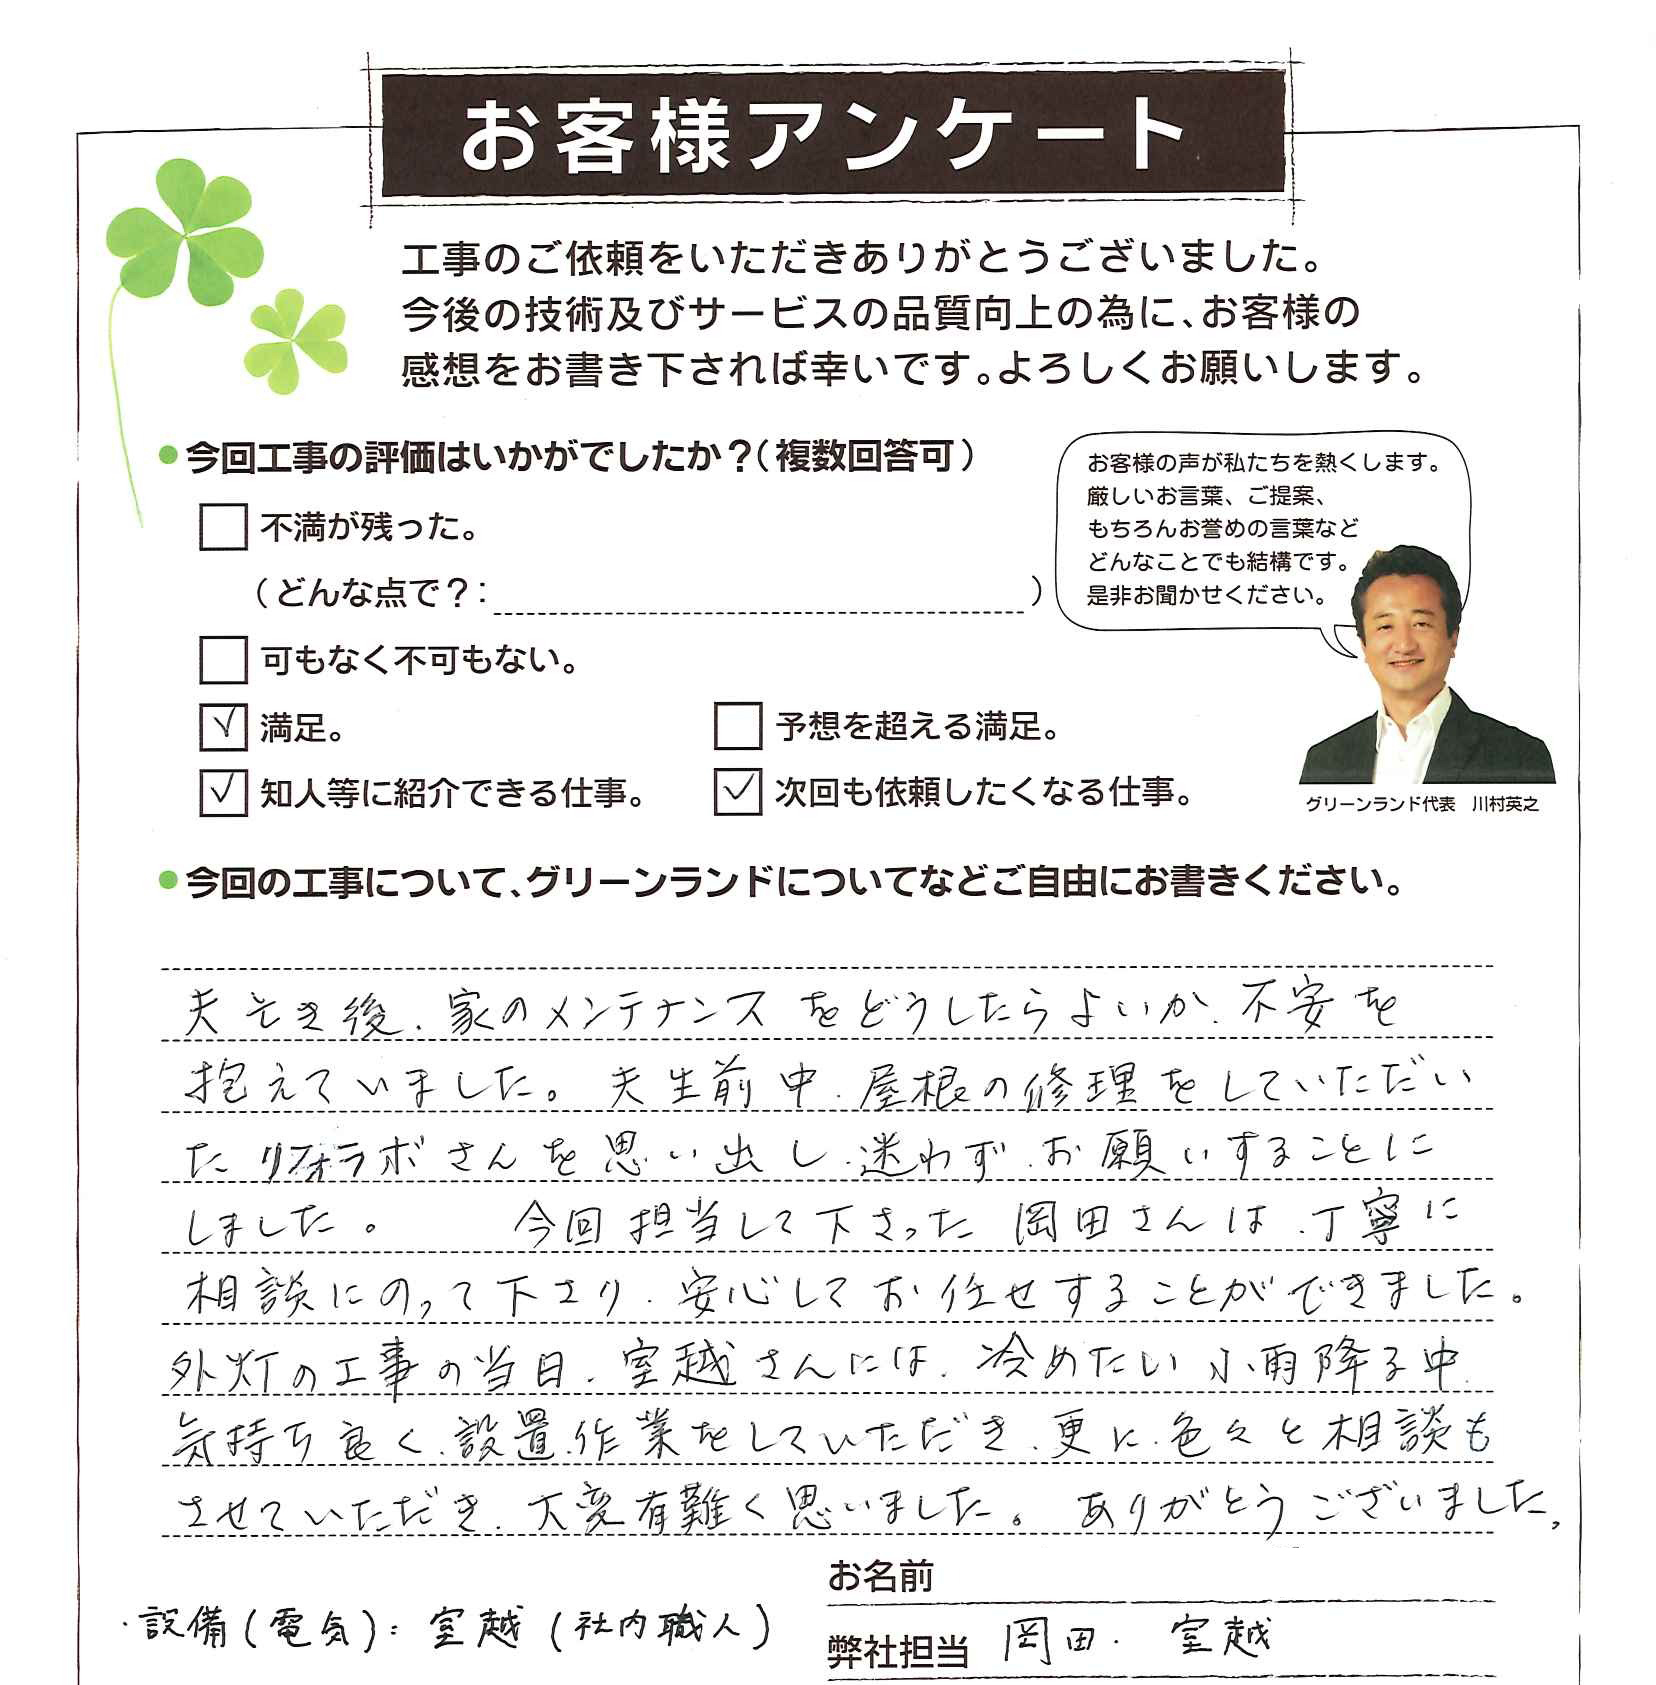 お客様アンケート
工事のご依頼をいただきありがとうございました。
今後の技術及びサービスの品質向上の為に、お客様の
感想をお書き下されば幸いです。よろしくお願いします。
●今回工事の評価はいかがでしたか？（複数回答可）
お客様の声が私たちを熱くします。
厳しいお言葉、ご提案、
もちろんお誉めの言葉など
どんなことでも結構です。
是非お聞かせください。
不満が残った。
（どんな点で？：　）
可もなく不可もない。
満足。
予想を超える満足。
知人等に紹介できる仕事。
次回も依頼したくなる仕事。
グリーンランド代表　川村英之
●今回の工事について、グリーンランドについてなどご自由にお書きください。
夫亡き後、家のメンテナンスをどうしたらよいか、不安を
抱えていました。夫生前中、屋根の修理をしていただい
たリフォラボさんを思い出し、迷わず、お願いすることに
しました。　今回担当して下さった岡田さんは、丁寧に
相談にのって下さり、安心してお任せすることができました。
外灯の工事の当日、室越さんには、冷めたい小雨降る中、
気持ち良く、設置作業をしていただき、更に、色々と相談も
させていただき、大変有難く思いました。ありがとうございました。
お名前
・設備(電気)：室越(社内職人)
弊社担当　岡田・室越